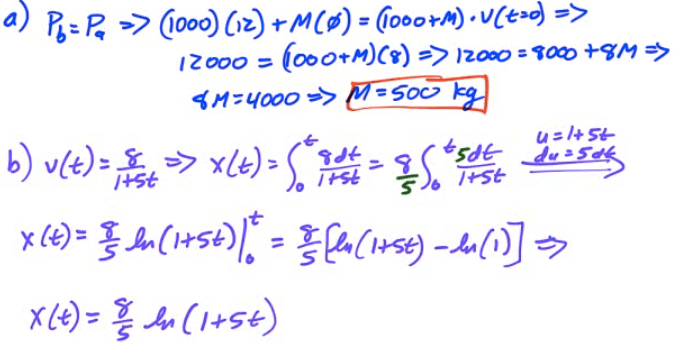 a) P_b = P_a => (1000)(12) + M(0̸) = (1000+M)·v(t=0) =>
12000 = (1000+M)(8) => 12000 = 8000 + 8M =>
8M = 4000 => M = 500 kg
b) v(t) = 8/(1+5t) => x(t) = ∫₀ᵗ 8dt/(1+5t) = 8/5 ∫₀ᵗ 5dt/(1+5t) u = 1+5t du = 5dt →
x(t) = 8/5 ln(1+5t)|₀ᵗ = 8/5 [ln(1+5t) - ln(1)] =>
x(t) = 8/5 ln(1+5t)